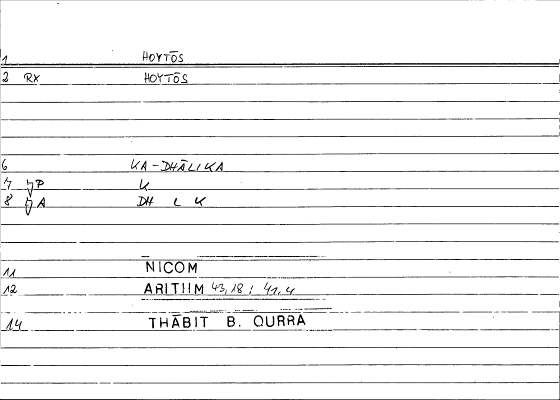 1 HOYTŌS
2 RX HOYTŌS
6 KA-DHĀLIKA
7 P K
8 A DH L K
11 NICOM
12 ARITHM 43,18; 41,4
14 THĀBIT B. QURRA